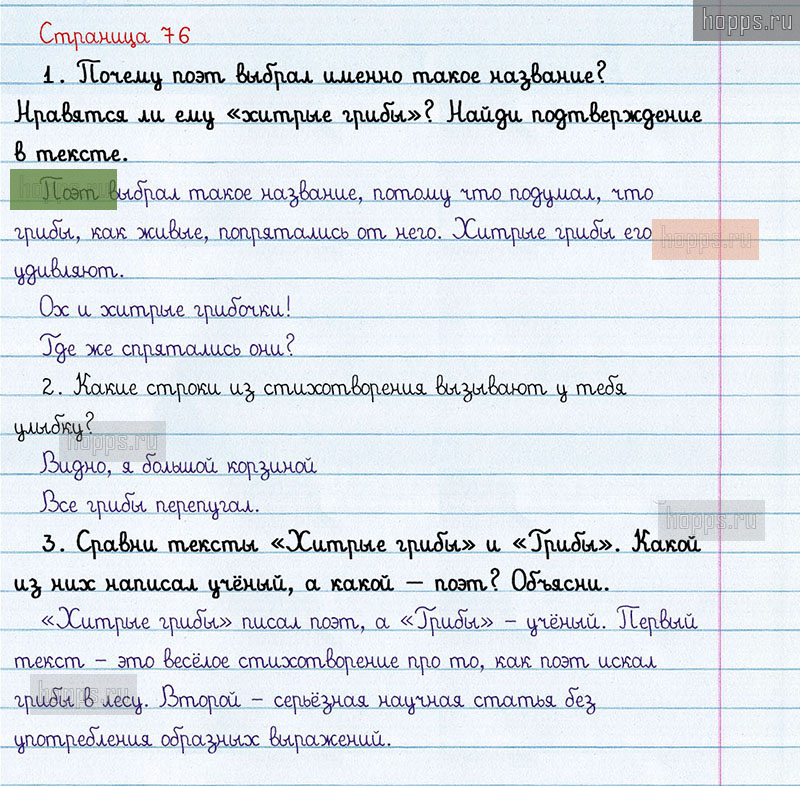 hopps.ru
Страница 76
1. Почему поэт выбрал именно такое название?
Нравятся ли ему «хитрые грибы»? Найди подтверждение
в тексте.
Поэт выбрал такое название, потому что подумал, что
грибы, как живые, попрятались от него. Хитрые грибы его
hopps.ru
удивляют.
Ох и хитрые грибочки!
Где же спрятались они?
2. Какие строки из стихотворения вызывают у тебя
улыбку?
hopps.ru
Видно, я большой корзиной
Все грибы перепугал.
hopps.ru
3. Сравни тексты «Хитрые грибы» и «Грибы». Какой
из них написал учёный, а какой – поэт? Объясни.
«Хитрые грибы» писал поэт, а «Грибы» – учёный. Первый
текст – это весёлое стихотворение про то, как поэт искал
грибы в лесу. Второй – серьёзная научная статья без
hopps.ru
употребления образных выражений.